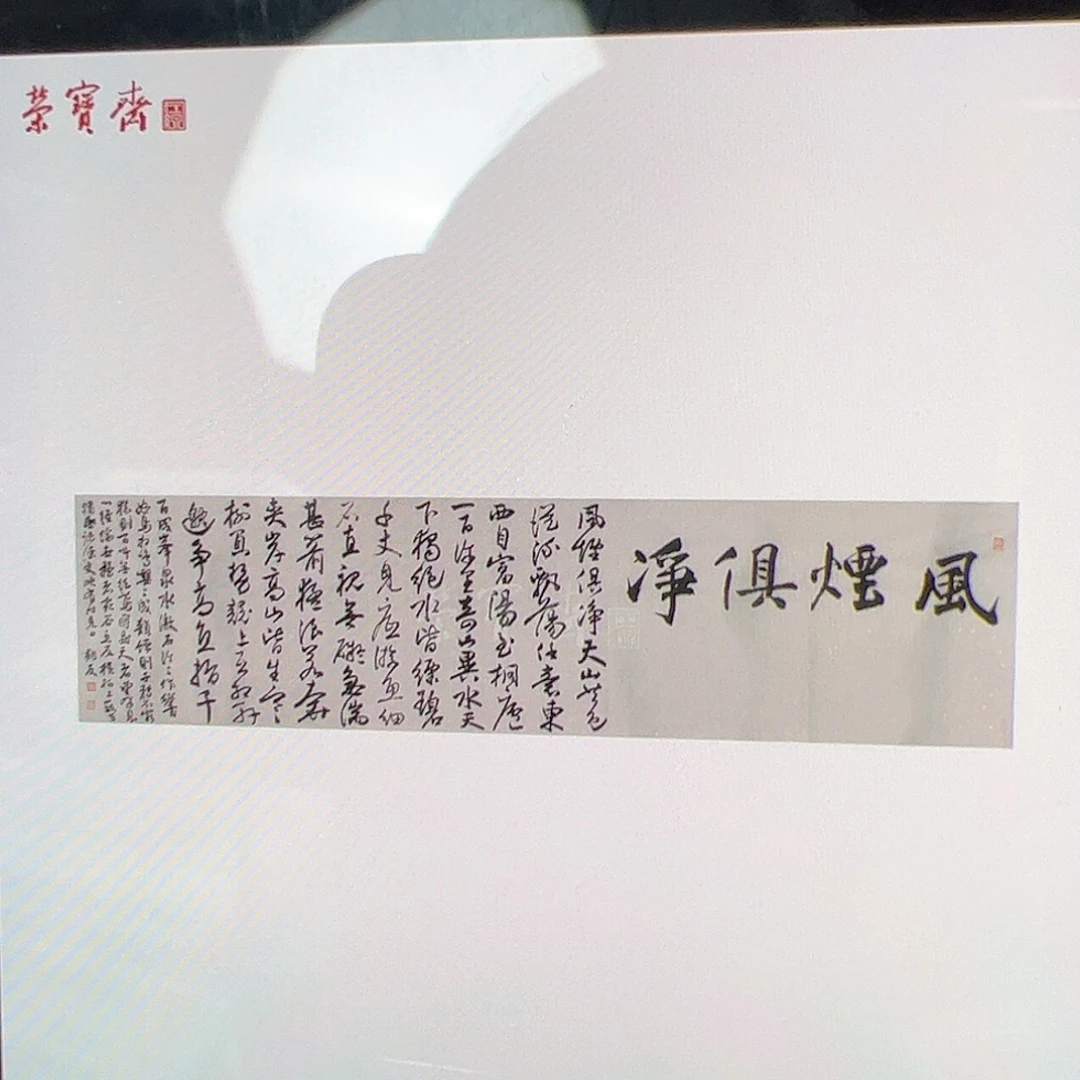 榮寶齋
風煙俱淨
風煙俱淨天山共色
從流飄蕩任意東
西自富陽至桐廬
一百許里奇山異水天
下獨絕水皆縹碧
千丈見底游魚細
石直視無礙急湍
甚箭猛浪若奔
夾岸高山皆生寒
樹負勢競上互相軒
邈爭高直指千
百成峯泉水激石泠〻作響
好鳥相鳴嚶〻成韻蟬則千轉不窮
猿則百叫無絕鳶飛戾天者望峰息